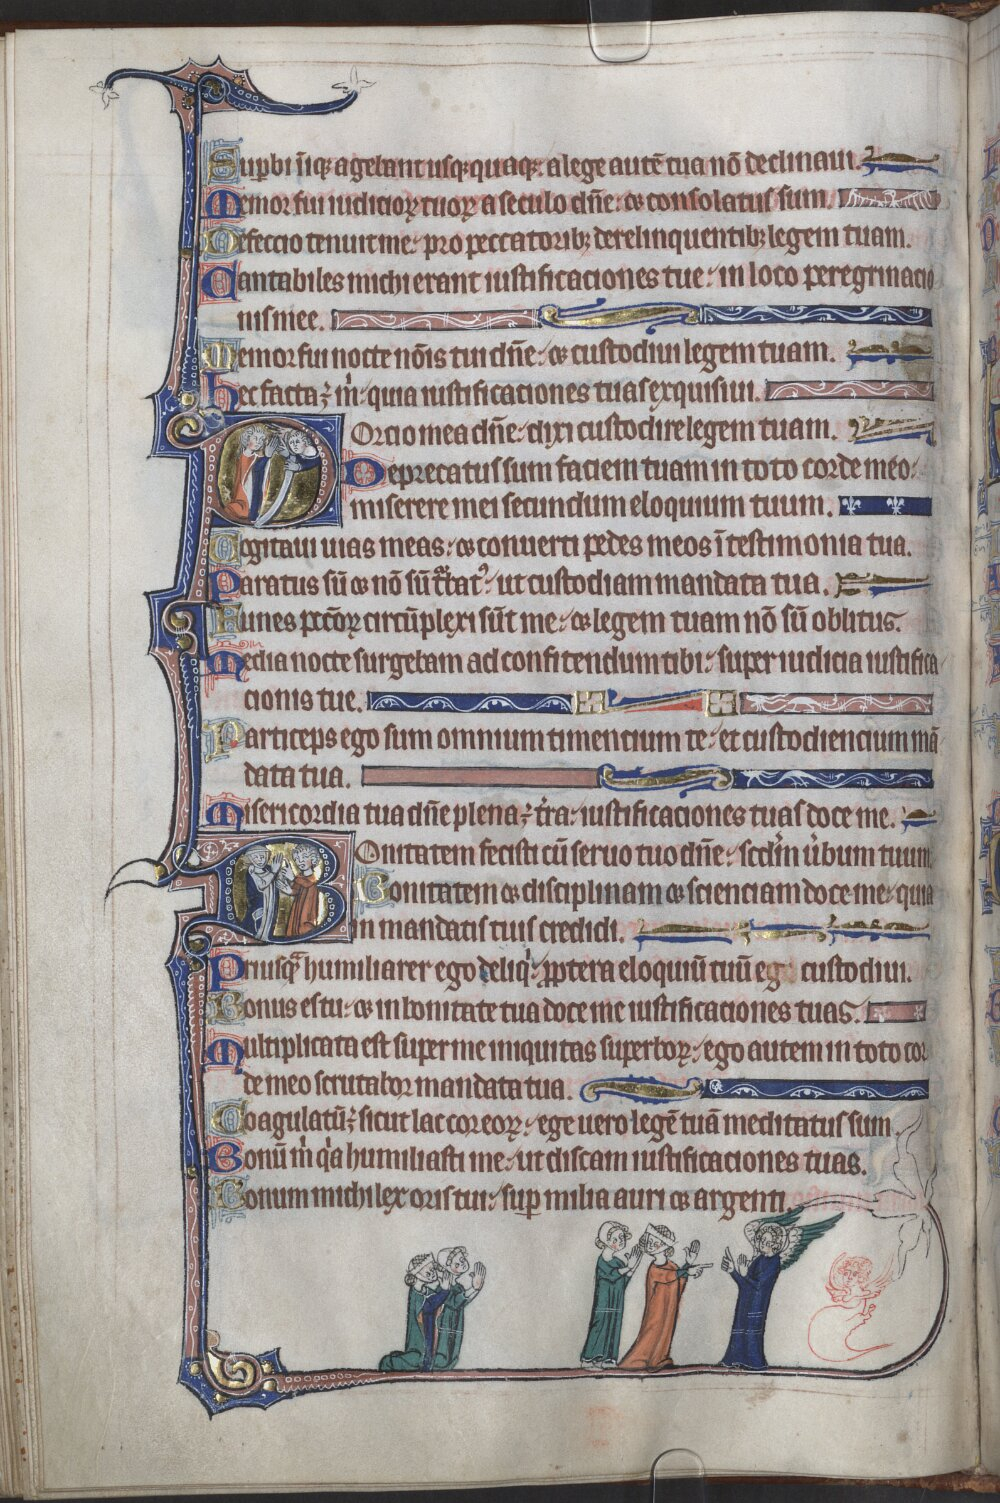 Supbi īiq; agebant usq;quaq;. a lege autē tua nō declinaui.
Memor fui iudicioꝝ tuoꝝ a seculo dn̄e: ⁊ consolatus sum.
Defeccio tenuit me: pro peccatorib; derelinquentib; legem tuam.
Cantabiles michi erant iustificaciones tue: in loco peregrinacio
nis mee.
Memor fui nocte nōis tui dn̄e: ⁊ custodiui legem tuam.
hec facta ē m̄: quia iustificaciones tuas exquisiui.
Porcio mea dn̄e: dixi custodire legem tuam.
Deprecatus sum faciem tuam in toto corde meo:
miserere mei secundum eloquium tuum.
Cogitaui uias meas: ⁊ conuerti pedes meos ī testimonia tua.
Paratus sū ⁊ nō sū t̄bat⁹: ut custodiam mandata tua.
Funes pccōꝝ circūplexi sūt me: ⁊ legem tuam nō sū oblitus.
Media nocte surgebam ad confitendum tibi: super iudicia iustifica
cionis tue.
Particeps ego sum omnium timencium te: et custodiencium mā
data tua.
Misericordia tua dn̄e plena ē t̄ra: iustificaciones tuas doce me.
Bonitatem fecisti cū seruo tuo dn̄e: scdm̄ ūbum tuum.
Bonitatem ⁊ disciplinam ⁊ scienciam doce me: quia
in mandatis tuis credidi.
Priusq̄ humiliarer ego deliq̄: ꝓpterea eloquiū tuū eg custodiui.
Bonus es tu: ⁊ in bonitate tua doce me iustificaciones tuas.
Multiplicata est super me iniquitas superboꝝ: ego autem in toto cor
de meo scrutabor mandata tua.
Coagulatū ē sicut lac cor eoꝝ: ege uero legē tuā meditatus sum.
Bonū m̄ q̄a humiliasti me: ut discam iustificaciones tuas.
Bonum michi lex oris tui: sup milia auri ⁊ argenti.